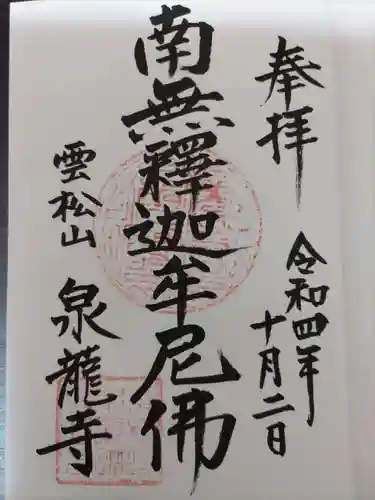 奉拝
令和四年
十月二日
南無釋迦牟尼佛
雲松山
泉龍寺